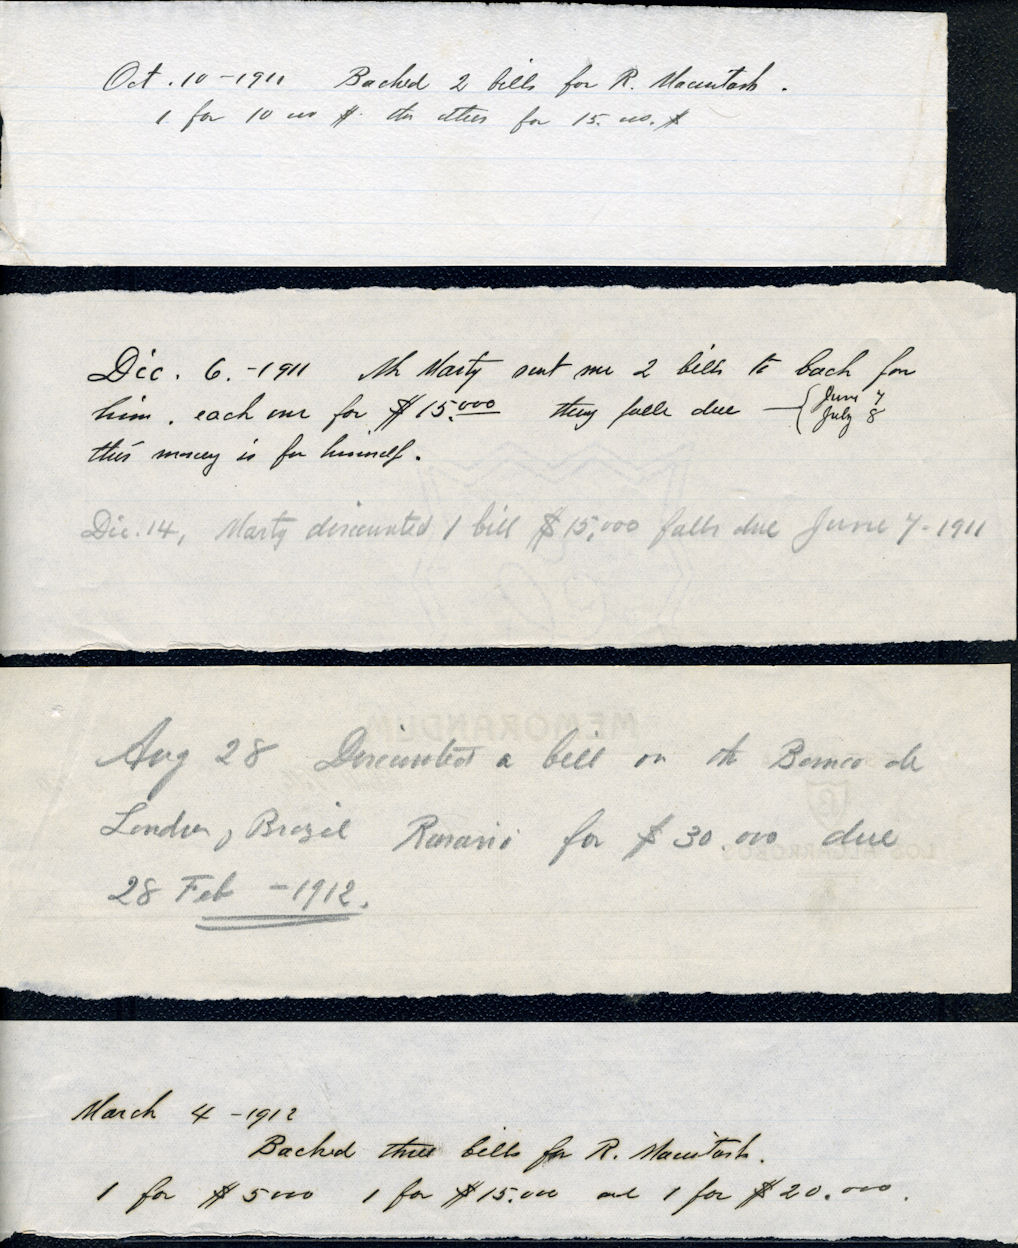 Oct. 10 - 1911 Backed 2 bills for R. Macintosh.
1 for 10 000 $. the other for 15.000.$
Dic. 6. - 1911 Mr Marty sent me 2 bills to back for
him. each one for $15.000 they falls due — { June 7
July 8
this money is for himself.
Dic. 14, Marty discounted 1 bill $15,000 falls due June 7 - 1911
MEMORANDUM
Aug 28 Discounted a bill on the Banco de
LOS ALGARROBOS
London, Brazil Rosario for $30.000 due
28 Feb - 1912.
March 4 - 1912
Backed three bills for R. Macintosh.
1 for $5000 1 for $15.000 and 1 for $20.000.